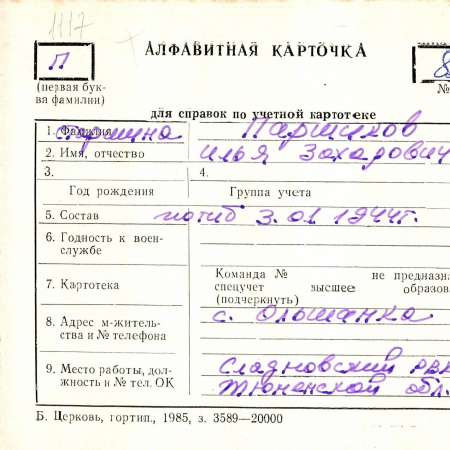 1117
П
АЛФАВИТНАЯ КАРТОЧКА
8
(первая бук-
ва фамилии)
№
для справок по учетной картотеке
1. Фамилия старшина Паршуков
2. Имя, отчество Илья Захарович
3.
4.
Год рождения
Группа учета
5. Состав погиб 3.01.1944г.
6. Годность к воен-
службе
7. Картотека
Команда № не предназна
спецучет высшее образова
(подчеркнуть)
8. Адрес м-житель-
ства и № телефона
с. Ольшанка
9. Место работы, дол-
жность и № тел. ОК
Сладковский РВК
Тюменской обл.
Б. Церковь, гортип., 1985, з. 3589—20000